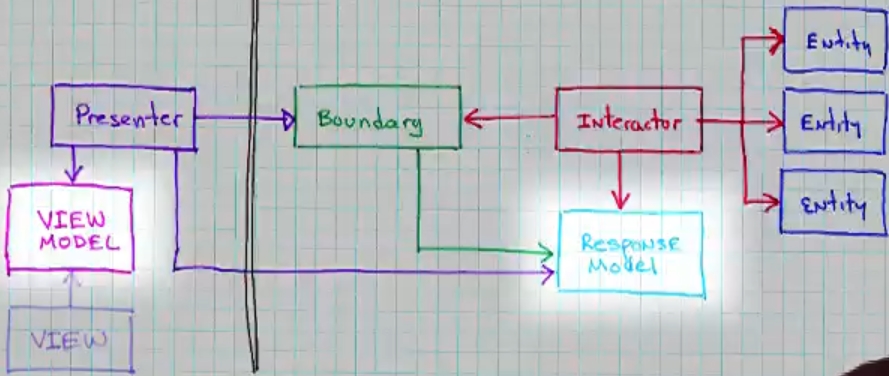 Entity
Presenter
Boundary
Interactor
Entity
Entity
VIEW
MODEL
Response
Model
VIEW